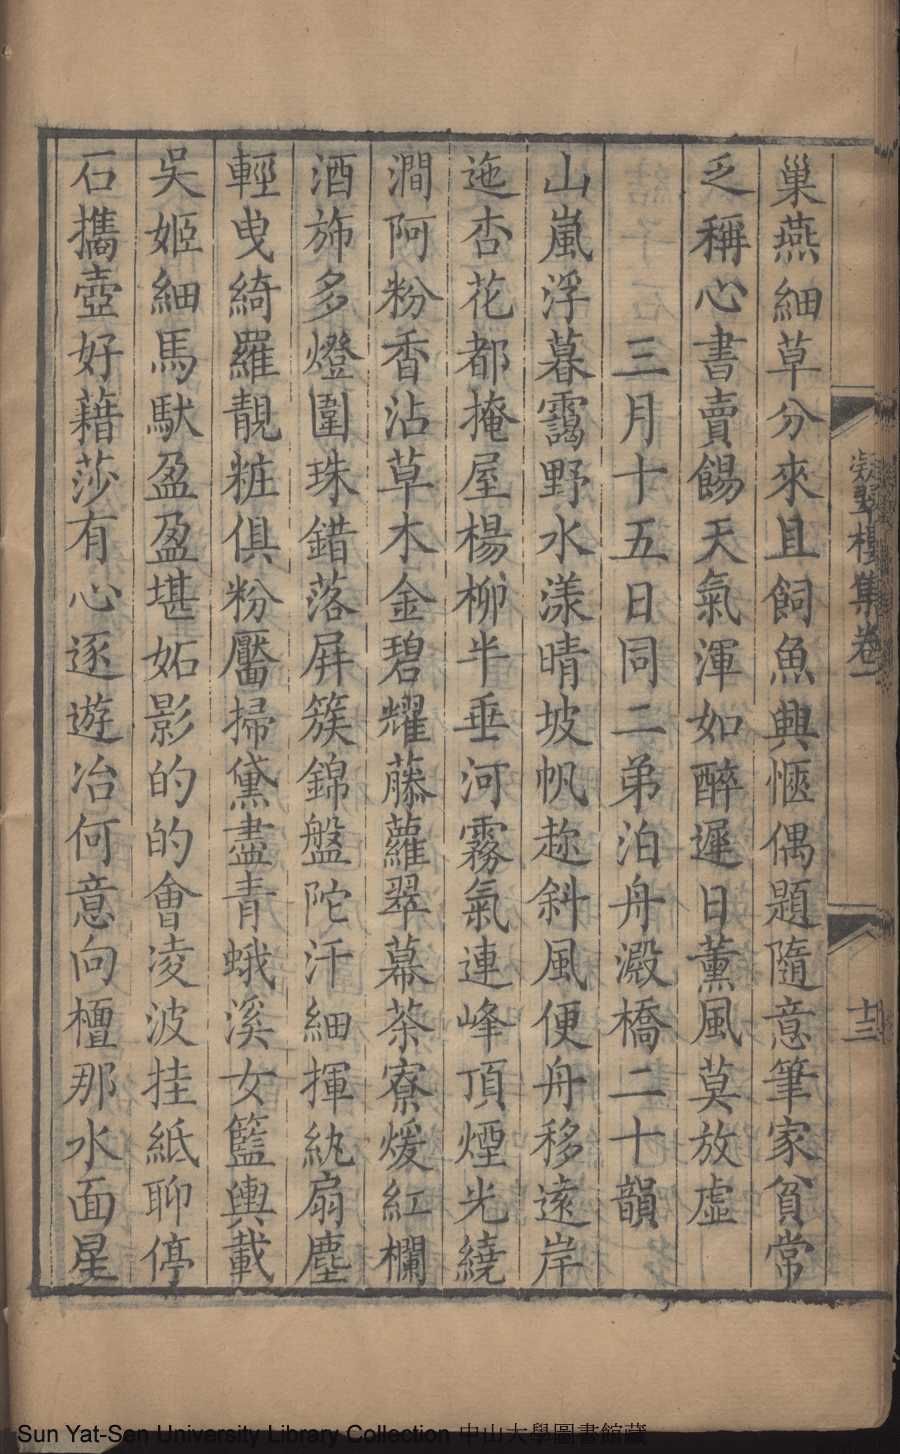 巢燕細草分來且飼魚興愜偶題隨意筆家貧常
乏稱心書賣餳天氣渾如醉遲日薰風莫放虛
三月十五日同二弟泊舟澱橋二十韻
山嵐浮暮靄野水漾晴坡帆趂斜風便舟移遠岸
迤杏花都掩屋楊柳半垂河霧氣連峰頂煙光繞
澗阿粉香沾草木金碧耀藤蘿翠幕茶寮煖紅欄
酒斾多燈圍珠錯落屏簇錦盤陀汗細揮紈扇塵
輕曳綺羅靚粧俱粉靨掃黛盡青蛾溪女籃輿載
吳姬細馬馱盈盈堪妬影的的會凌波挂紙聊停
石攜壺好藉莎有心逐遊冶何意向檀那水面星
凝翠樓集卷一
十三
Sun Yat-Sen University Library Collection 中山大學圖書館藏